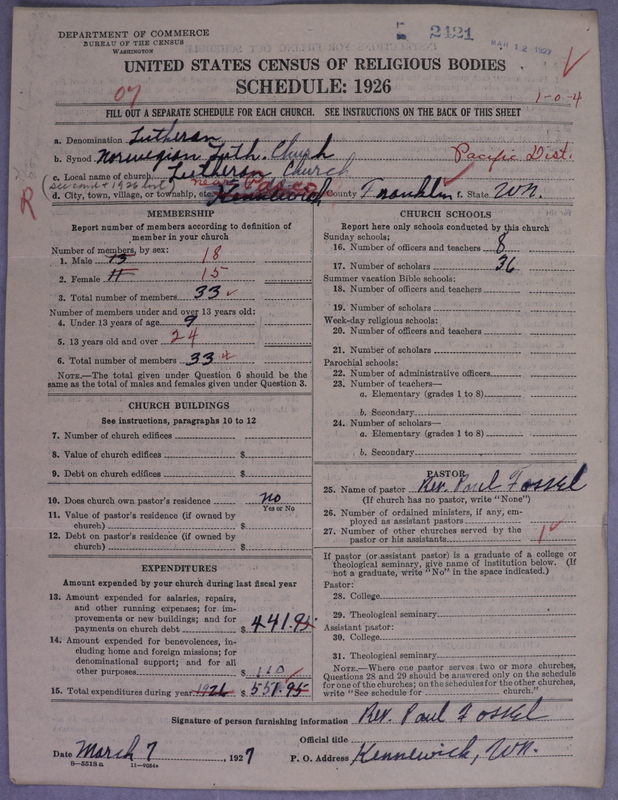 DEPARTMENT OF COMMERCE
BUREAU OF THE CENSUS
WASHINGTON
2121
MAR 12 1927
UNITED STATES CENSUS OF RELIGIOUS BODIES
SCHEDULE: 1926
07
1-0-4
FILL OUT A SEPARATE SCHEDULE FOR EACH CHURCH. SEE INSTRUCTIONS ON THE BACK OF THIS SHEET
a. Denomination Lutheran
b. Synod Norwegian Luth. Church Pacific Dist.
c. Local name of church Lutheran Church
(second + 1926 list) near Pasco
R d. City, town, village, or township, Kennewick County Franklin f. State Wn.
MEMBERSHIP
Report number of members according to definition of member in your church
Number of members, by sex:
1. Male 13 18
2. Female 11 15
3. Total number of members 33
Number of members under and over 13 years old:
4. Under 13 years of age 9
5. 13 years old and over 24
6. Total number of members 33
NOTE.—The total given under Question 6 should be the same as the total of males and females given under Question 3.
CHURCH BUILDINGS
See instructions, paragraphs 10 to 12
7. Number of church edifices
8. Value of church edifices $
9. Debt on church edifices $
10. Does church own pastor's residence no
Yes or No
11. Value of pastor's residence (if owned by church) $
12. Debt on pastor's residence (if owned by church) $
EXPENDITURES
Amount expended by your church during last fiscal year
13. Amount expended for salaries, repairs, and other running expenses; for improvements or new buildings; and for payments on church debt $ 441.95
14. Amount expended for benevolences, including home and foreign missions; for denominational support; and for all other purposes $ 110
15. Total expenditures during year 1926 $ 551.95
CHURCH SCHOOLS
Report here only schools conducted by this church
Sunday schools:
16. Number of officers and teachers 8
17. Number of scholars 36
Summer vacation Bible schools:
18. Number of officers and teachers
19. Number of scholars
Week-day religious schools:
20. Number of officers and teachers
21. Number of scholars
Parochial schools:
22. Number of administrative officers
23. Number of teachers—
a. Elementary (grades 1 to 8)
b. Secondary
24. Number of scholars—
a. Elementary (grades 1 to 8)
b. Secondary
PASTOR
25. Name of pastor Rev. Paul Fossel
(If church has no pastor, write "None")
26. Number of ordained ministers, if any, employed as assistant pastors
27. Number of other churches served by the pastor or his assistants 1
If pastor (or assistant pastor) is a graduate of a college or theological seminary, give name of institution below. (If not a graduate, write "No" in the space indicated.)
Pastor:
28. College
29. Theological seminary
Assistant pastor:
30. College
31. Theological seminary
NOTE.—Where one pastor serves two or more churches, Questions 28 and 29 should be answered only on the schedule for one of the churches; on the schedules for the other churches, write "See schedule for church."
Signature of person furnishing information Rev. Paul Fossel
Official title
Date March 7, 1927 P. O. Address Kennewick, Wn.
8—5518a 11—9054a